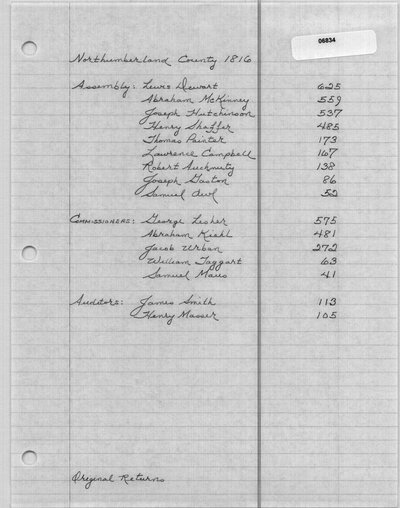 06834
Northumberland County 1816
Assembly: Lewis Dewart 625
Abraham McKinney 559
Joseph Hutchinson 537
Henry Shaffer 485
Thomas Painter 173
Lawrence Campbell 167
Robert Auchmuty 138
Joseph Gaston 86
Samuel Awl 52
Commissioners: George Lesher 575
Abraham Kiehl 481
Jacob Urban 272
William Taggart 63
Samuel Maus 41
Auditors: James Smith 113
Henry Masser 105
Original Returns